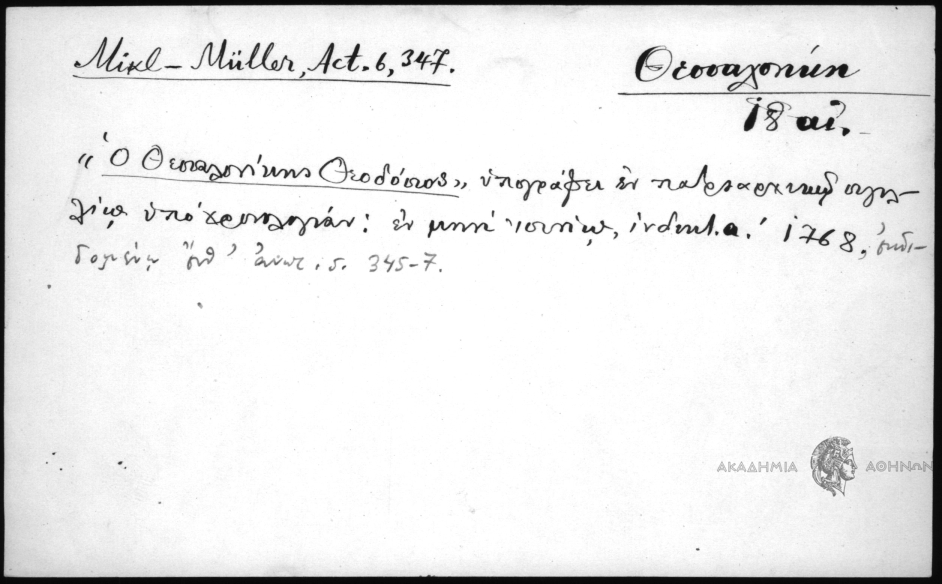 Mikl - Müller, Act. 6, 347.
Θεσσαλονίκη
18 αἰ.
"Ὁ Θεσσαλονίκης Θεοδόσιος", ὑπογράφει ἐν πατριαρχικῷ σιγιλ-
λίῳ ὑπὸ χρονολογίαν: ἐν μηνὶ ἰουνίῳ, ἰνδικτ. α.' 1768, ἐκδι-
δομένῳ ἀνωτ. σ. 345-7.
ΑΚΑΔΗΜΙΑ ΑΘΗΝΩΝ